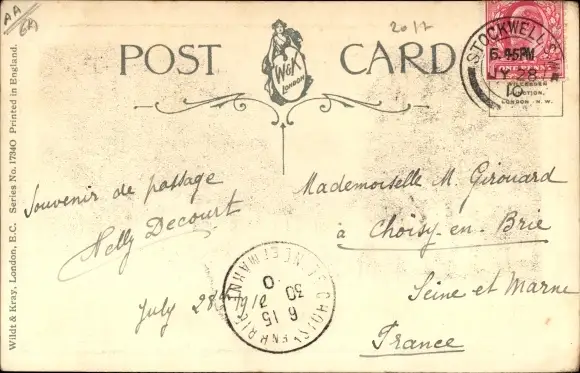 AA
GK
2017
POST CARD
W&K
LONDON
STOCKWELL
6.45PM
JY 28
10
ONE PENNY
LONDON N.W.
Wildt & Kray, London, E.C. Series No. 17340 Printed in England.
Souvenir de passage
Nelly Decourt
July 28th 1910
Mademoiselle M. Girouard
à Choisy-en-Brie
Seine et Marne
France
CHOISY EN BRIE
SEINE ET MARNE
6 15
30